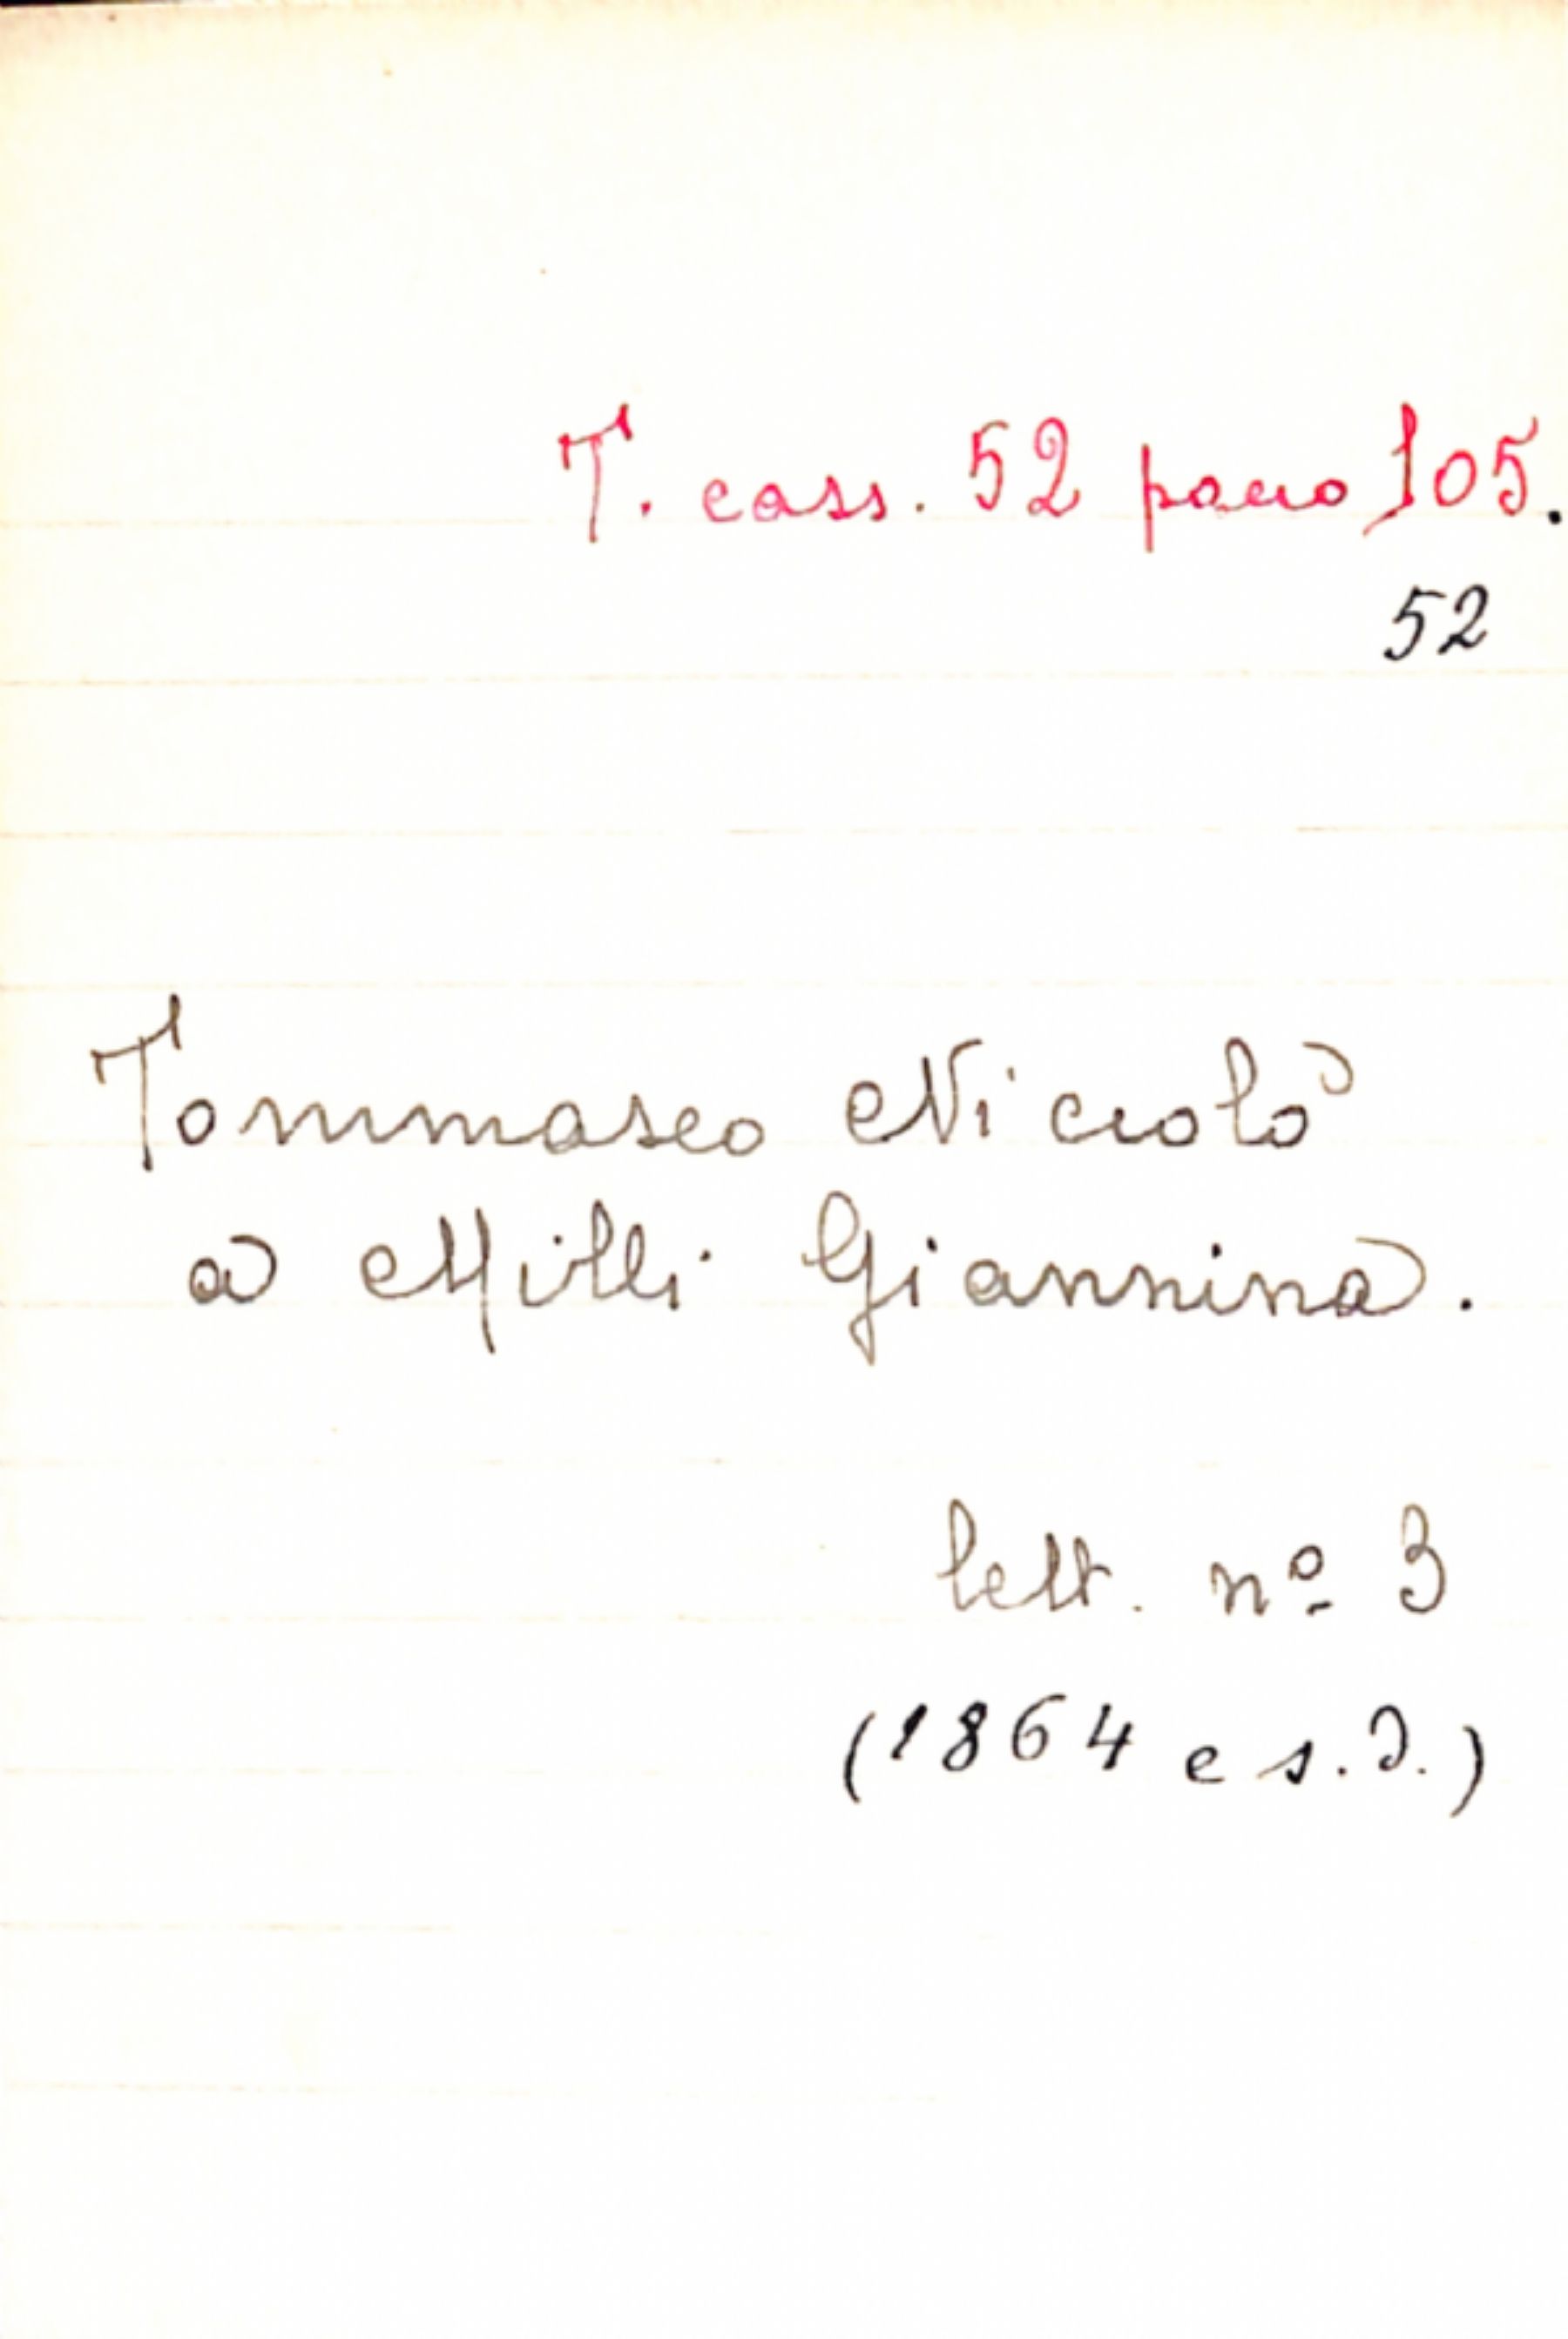 T. cass. 52 pacco 105.
52
Tommaseo Niccolò
a Milli Giannina.
lett. nº 3
(1864 e s.d.)